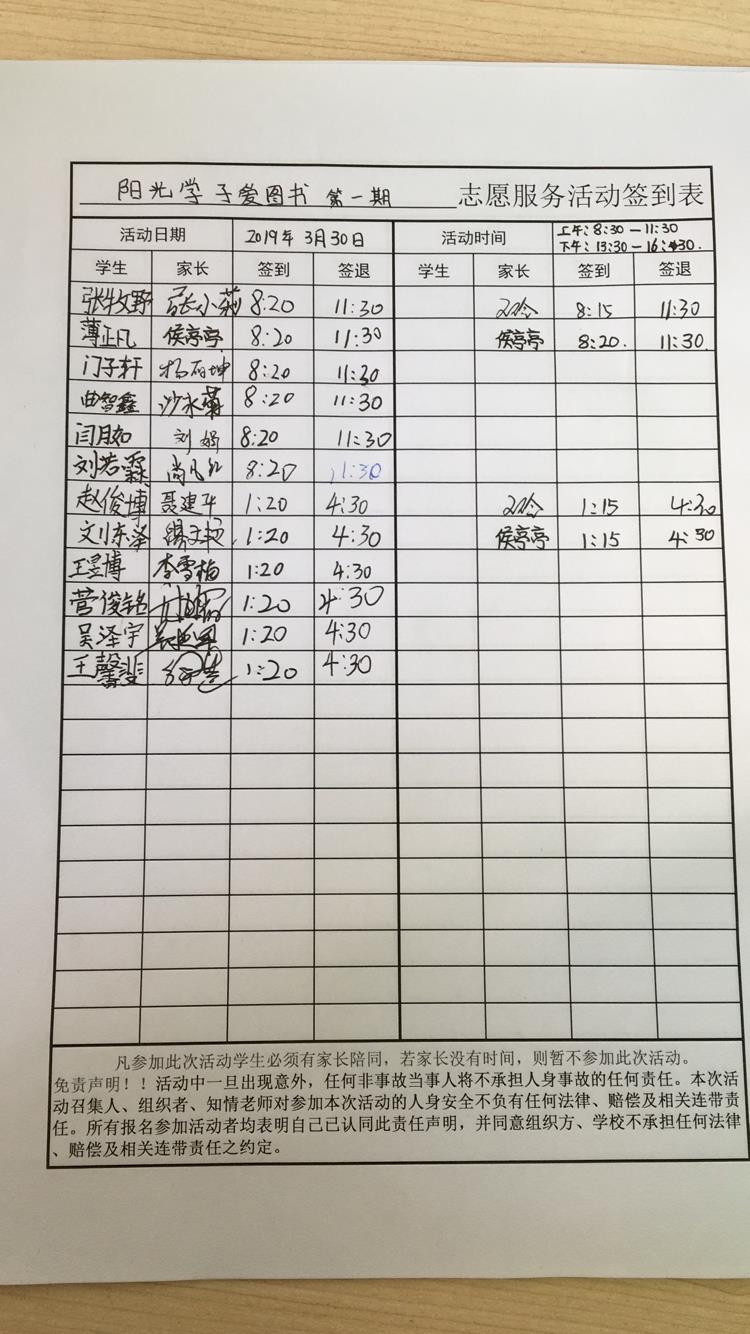 阳光学子爱图书 第一期 志愿服务活动签到表
活动日期 2019年3月30日 活动时间 上午:8:30-11:30
下午:13:30-16:30.
学生 家长 签到 签退 学生 家长 签到 签退
张牧野 张小莉 8:20 11:30 8:15 11:30
薄正凡 侯亭亭 8:20 11:30 侯亭亭 8:20. 11:30.
门子轩 8:20 11:30
曲智鑫 沙永菊 8:20 11:30
闫月如 刘娇 8:20 11:30
刘若霖 8:20 11:30
赵俊博 聂建平 1:20 4:30 1:15 4:30
刘东泽 1:20 4:30 侯亭亭 1:15 4:30
王昱博 李雪梅 1:20 4:30
菅俊铭 1:20 4:30
吴泽宇 1:20 4:30
王馨斐 1:20 4:30
凡参加此次活动学生必须有家长陪同,若家长没有时间,则暂不参加此次活动。
免责声明!!活动中一旦出现意外,任何非事故当事人将不承担人身事故的任何责任。本次活
动召集人、组织者、知情老师对参加本次活动的人身安全不负有任何法律、赔偿及相关连带责
任。所有报名参加活动者均表明自己已认同此责任声明,并同意组织方、学校不承担任何法律
、赔偿及相关连带责任之约定。